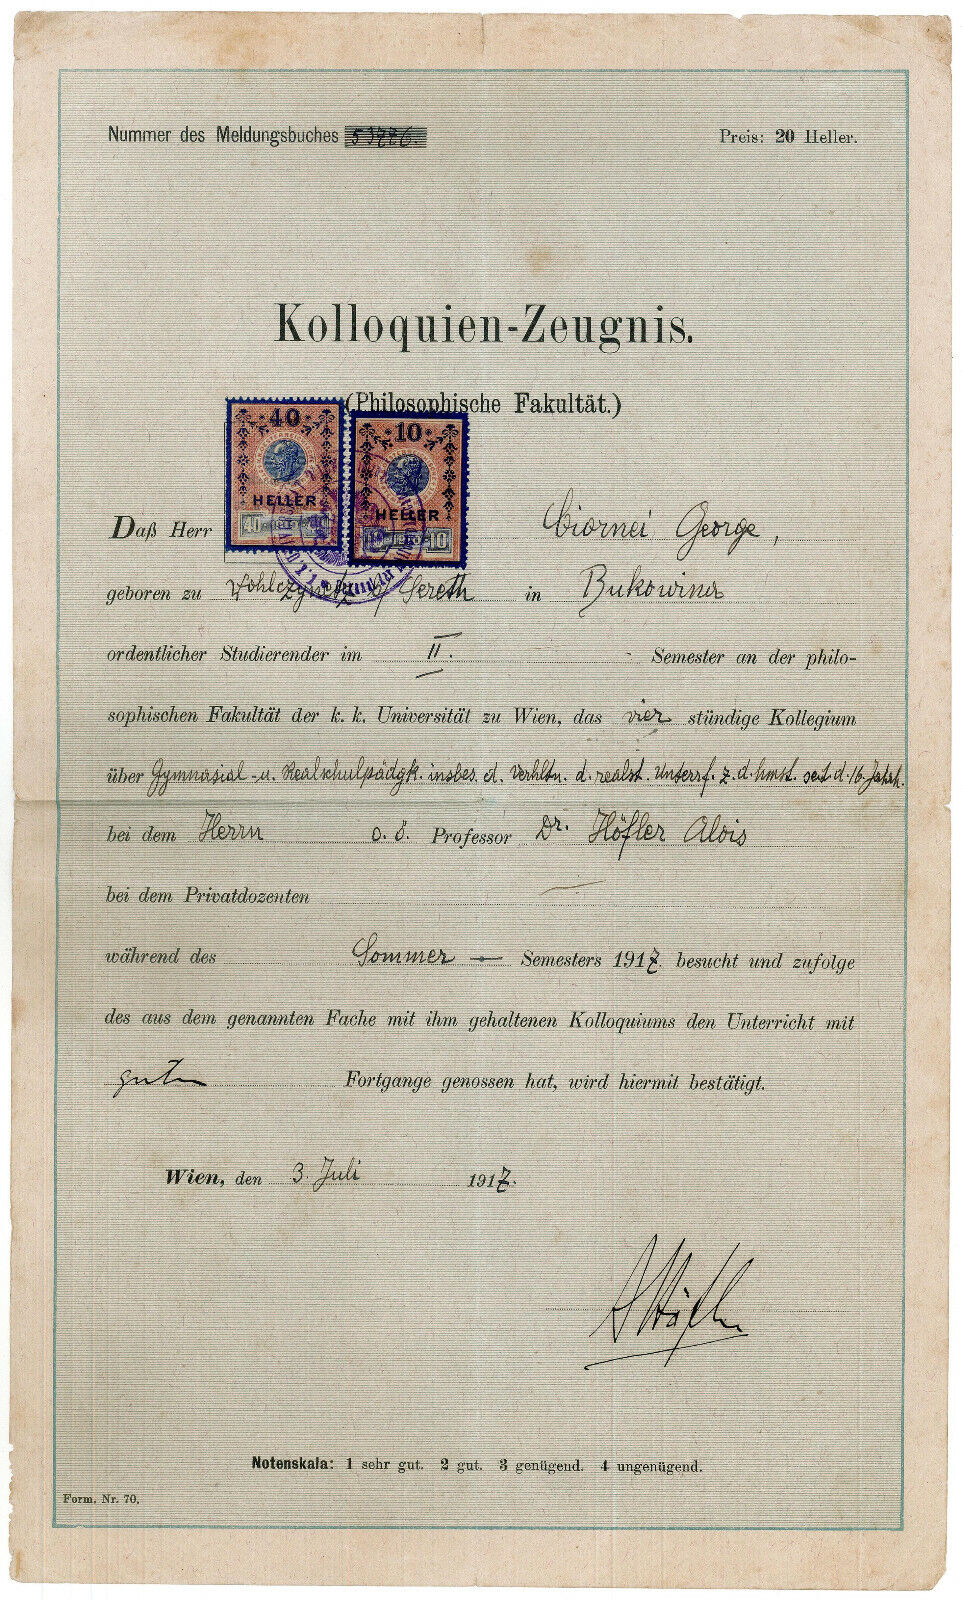 Nummer des Meldungsbuches 53776.
Preis: 20 Heller.
Kolloquien-Zeugnis.
(Philosophische Fakultät.)
40 HELLER
10 HELLER
Daß Herr Ciornei George,
geboren zu Sereth in Bukowina
ordentlicher Studierender im II. Semester an der philo-
sophischen Fakultät der k. k. Universität zu Wien, das vier stündige Kollegium
über Gymnasial- u. Realschulpädgk. insbes. d. Verhltn. d. realst. Unterrf. z. d. hmst. seit d. 16. Jahrh.
bei dem Herrn o. ö. Professor Dr. Höfler Alois
bei dem Privatdozenten —
während des Sommer — Semesters 1917. besucht und zufolge
des aus dem genannten Fache mit ihm gehaltenen Kolloquiums den Unterricht mit
gutem Fortgange genossen hat, wird hiermit bestätigt.
Wien, den 3. Juli 1917.
A Höfler
Notenskala: 1 sehr gut. 2 gut. 3 genügend. 4 ungenügend.
Form. Nr. 70.